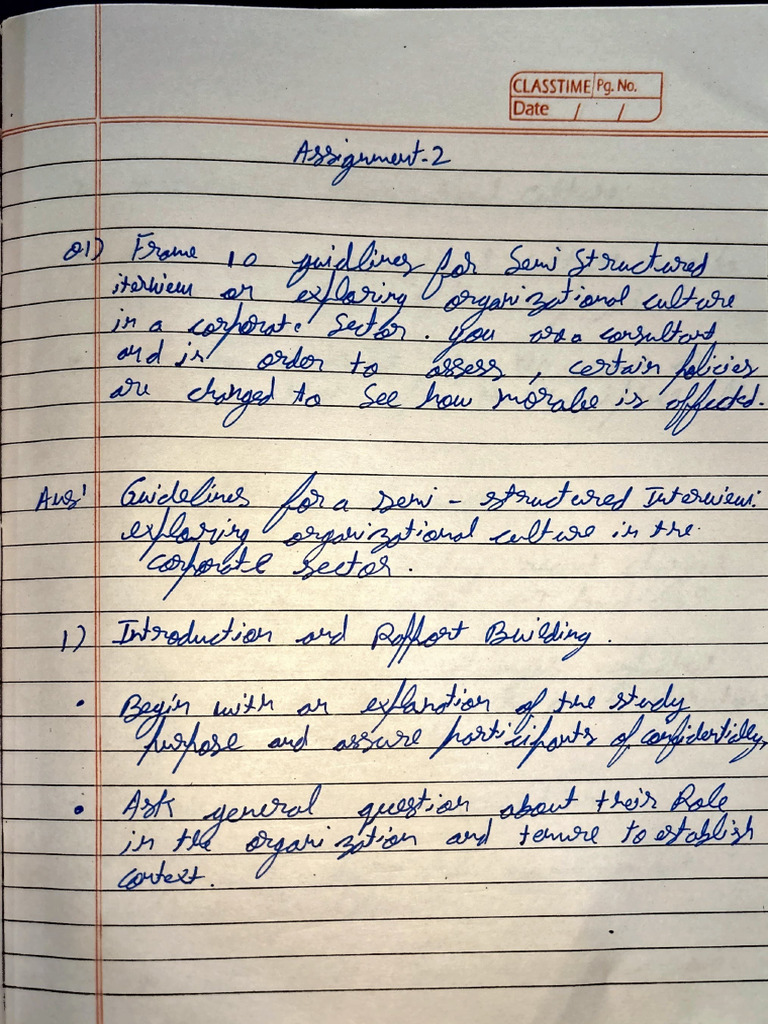 CLASSTIME Pg. No.
Date / /
Assignment-2
Q1) Frame 10 guidlines for Semi Structured
iterview on exploring organizational culture
in a corporate Sector. you are a consultant
and in order to assess, certain policies
are changed to See how morale is affected.
Ans: Guidelines for a semi - structured Interview:
exploring organizational culture in the
corporate sector.
1) Introduction and Rapport Building.
• Begin with an explanation of the study
purpose and assure participants of confidentiality.
• Ask general question about their Role
in the organization and tenure to establish
context.